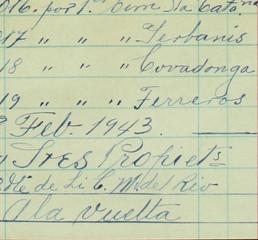 016. por 1ª Cem Sta Cata na
017 " " " Yerbanis
18 " " " Covadonga
19 " " " Ferreros
Feb. 1943.
Tres Propiets
de Li C. M. del Rio
A la vuelta